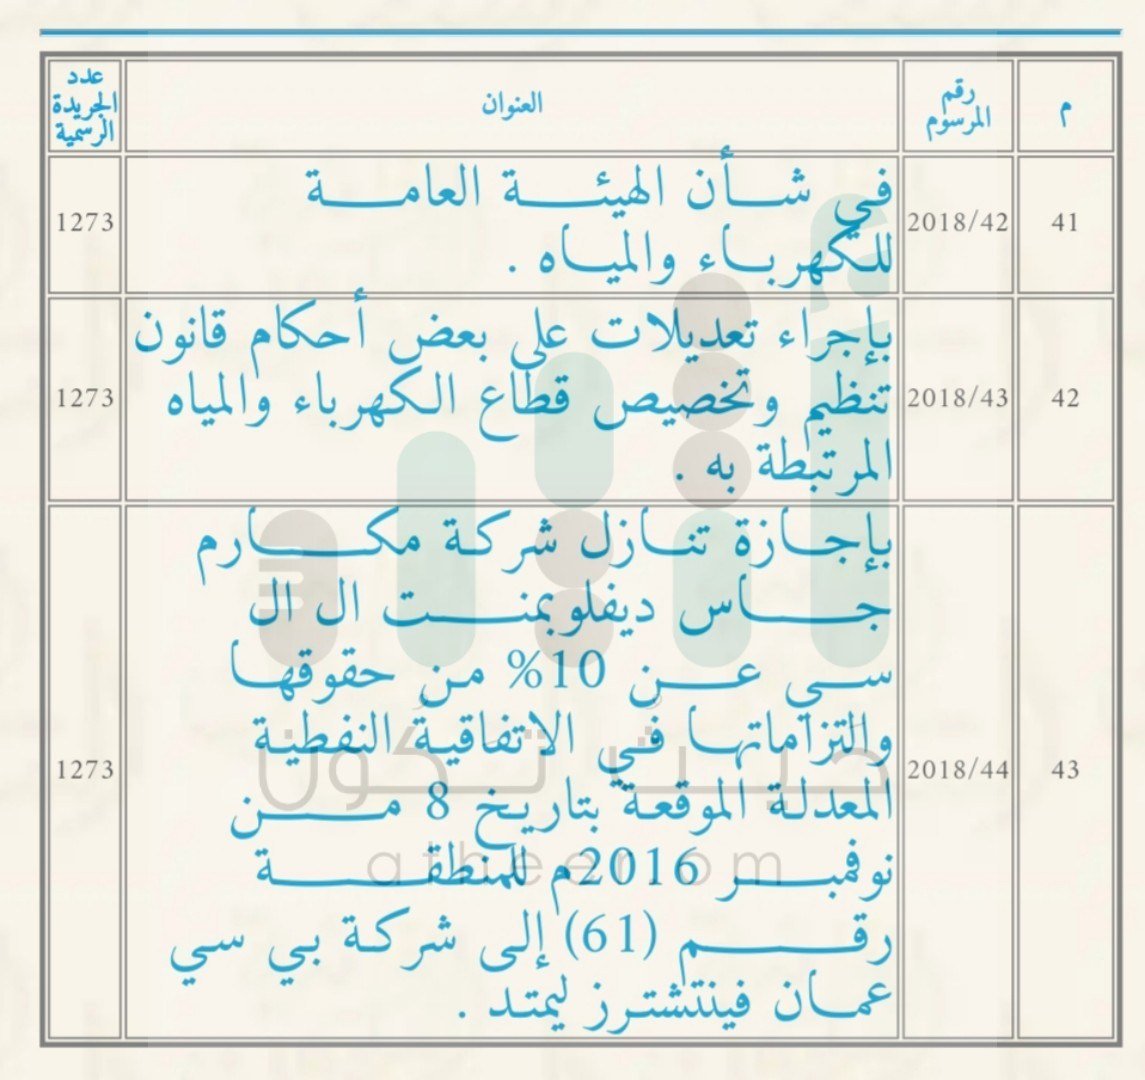 م
رقم
المرسوم
العنوان
عدد
الجريدة
الرسمية
41
2018/42
في شأن الهيئة العامة
للكهرباء والمياه .
1273
42
2018/43
بإجراء تعديلات على بعض أحكام قانون
تنظيم وتخصيص قطاع الكهرباء والمياه
المرتبطة به .
1273
43
2018/44
بإجازة تنازل شركة مكارم
جاس ديفلوبمنت ال ال
سي عن 10% من حقوقها
والتزاماتها في الاتفاقية النفطية
المعدلة الموقعة بتاريخ 8 من
نوفمبر 2016م للمنطقة
رقم (61) إلى شركة بي سي
عمان فينتشترز ليمتد .
1273
حيث تكون
atheer om